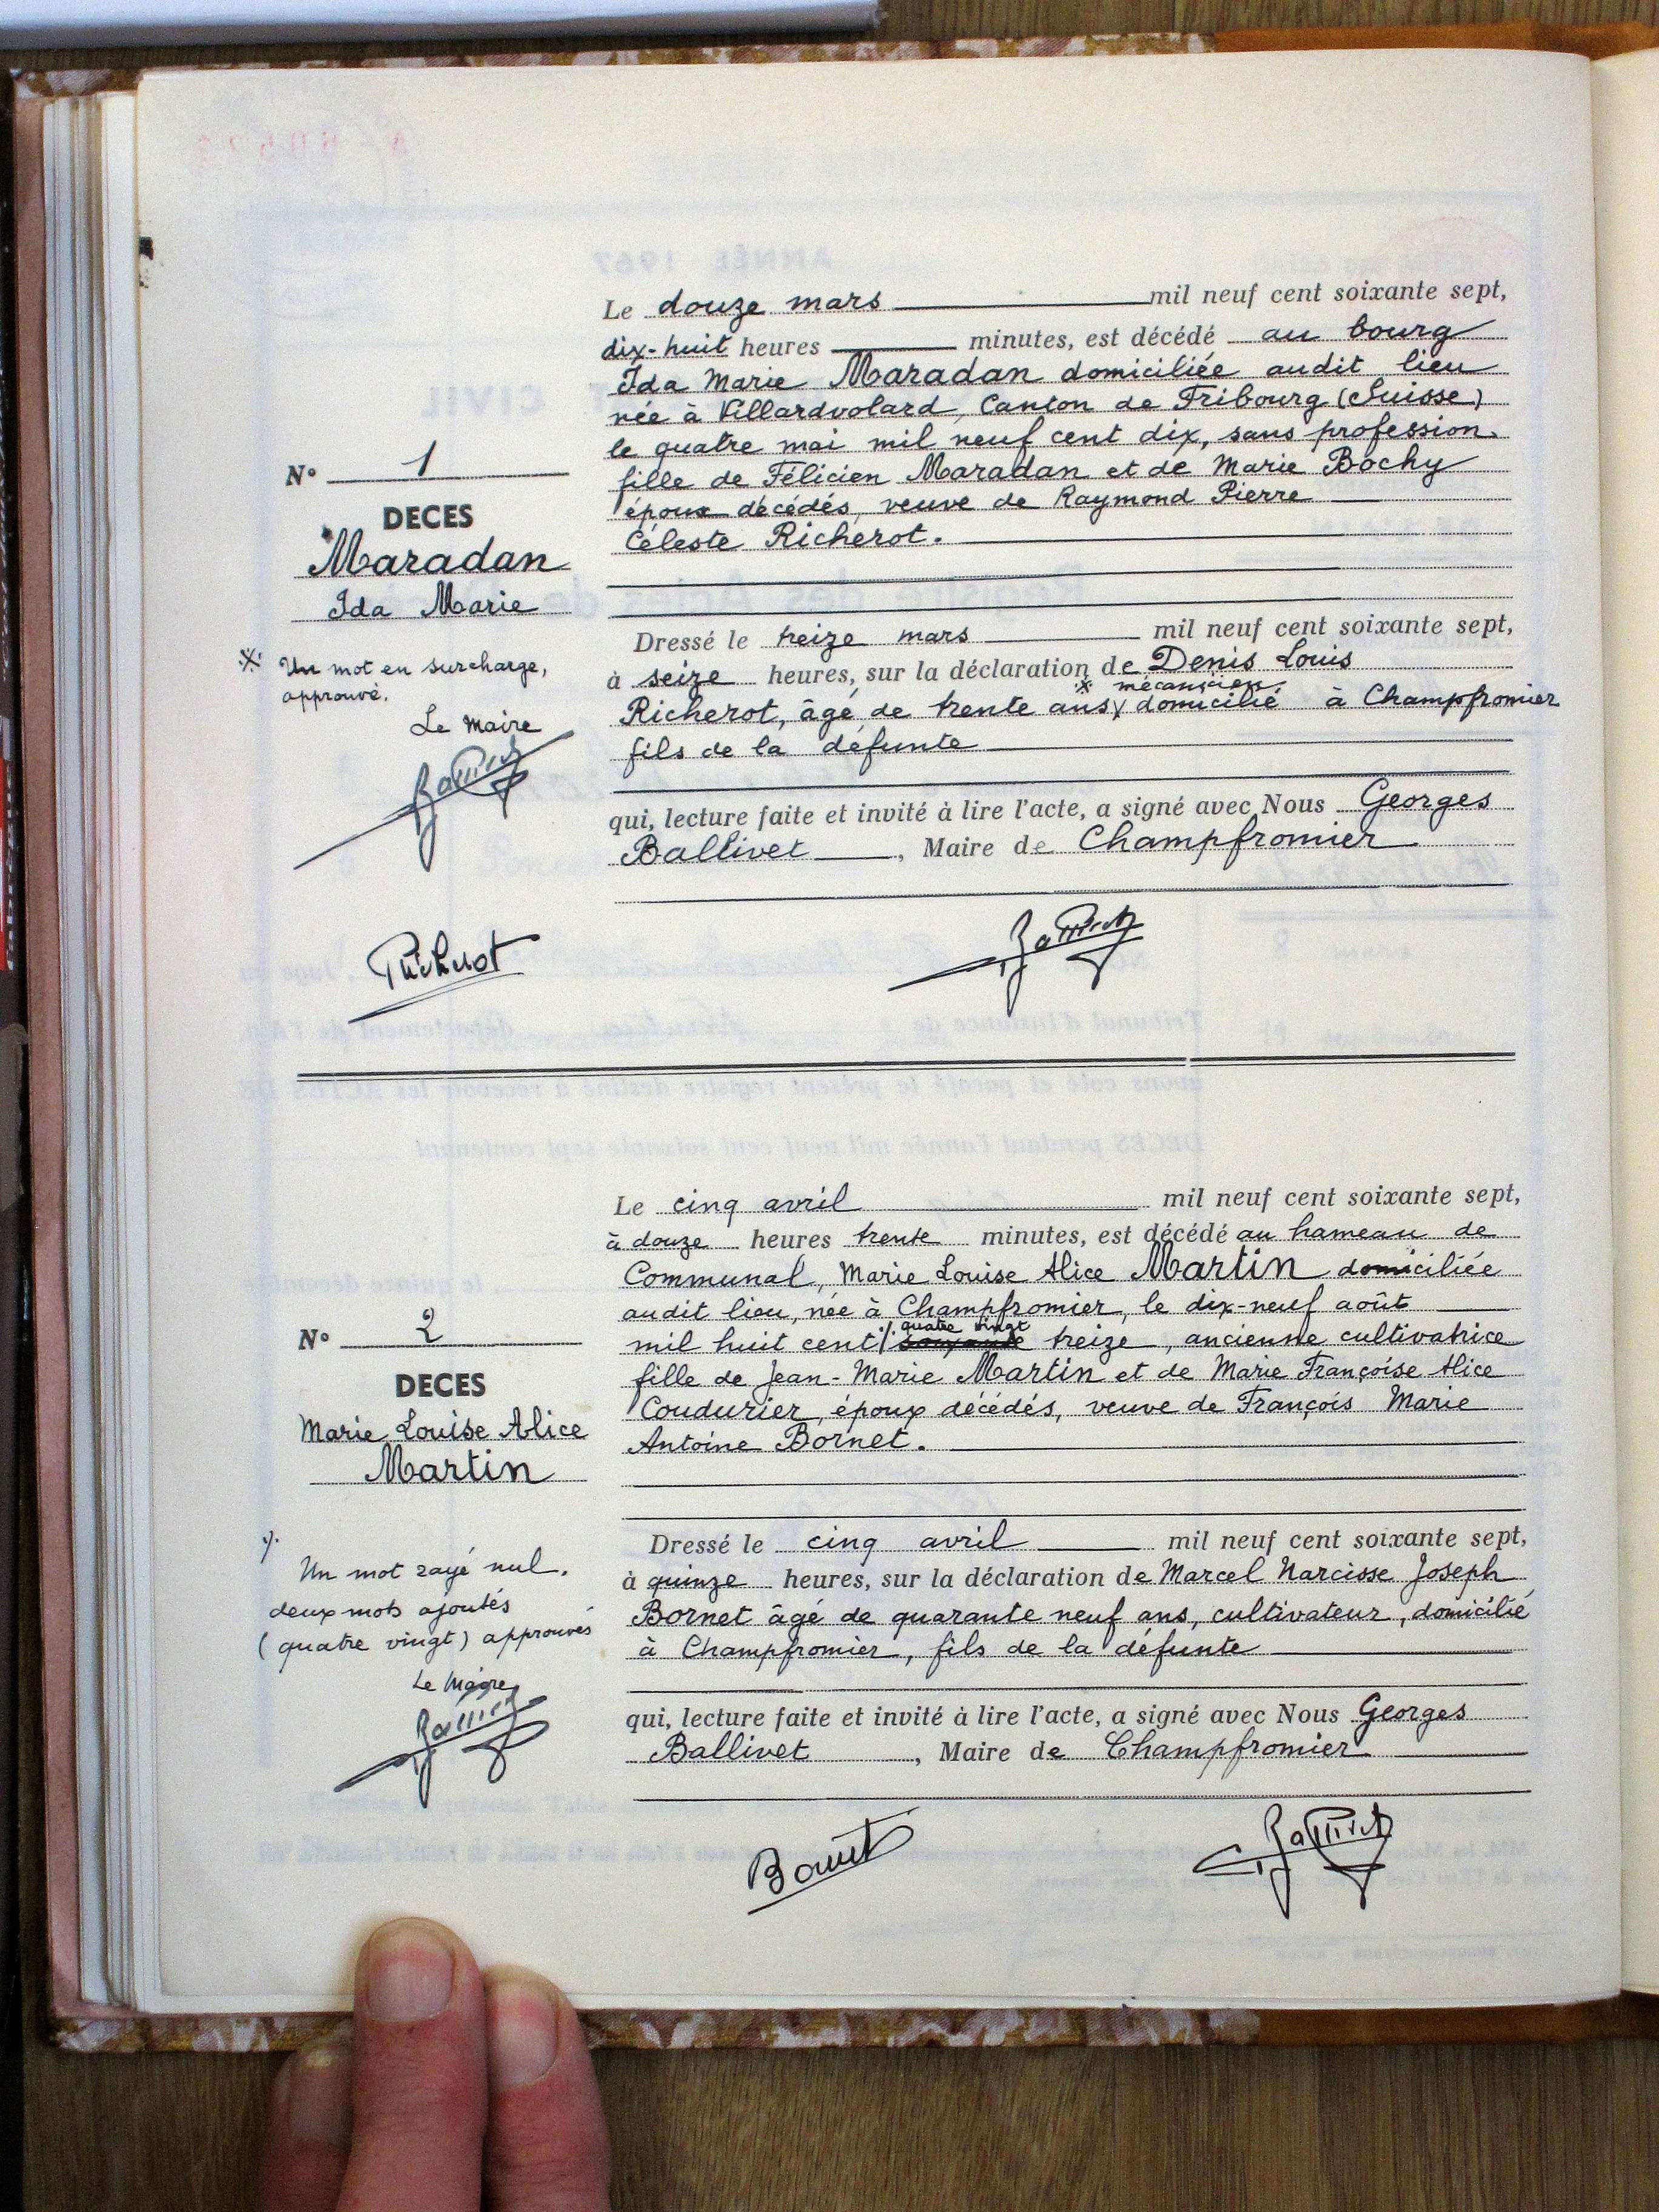 Le douze mars mil neuf cent soixante sept,
dix-huit heures minutes, est décédé au bourg
Ida Marie Maradan domiciliée audit lieu
née à Villardvolard, Canton de Fribourg (Suisse)
le quatre mai mil neuf cent dix, sans profession.
fille de Félicien Maradan et de Marie Bochy
époux décédés, veuve de Raymond Pierre
Céleste Richerot.
N° 1
DECES
Maradan
Ida Marie
Un mot en surcharge,
approuvé.
Le Maire
Dressé le treize mars mil neuf cent soixante sept,
à seize heures, sur la déclaration de Denis Louis
mécanicien
Richerot, âgé de trente ans, domicilié à Champfromier
fils de la défunte
qui, lecture faite et invité à lire l'acte, a signé avec Nous Georges
Ballivet, Maire de Champfromier
Richerot
Le cinq avril mil neuf cent soixante sept,
à douze heures trente minutes, est décédé au hameau de
Communal, Marie Louise Alice Martin domiciliée
audit lieu, née à Champfromier, le dix-neuf août
quatre vingt
mil huit cent soixante treize, ancienne cultivatrice
fille de Jean-Marie Martin et de Marie Françoise Alice
Coudurier, époux décédés, veuve de François Marie
Antoine Bornet.
N° 2
DECES
Marie Louise Alice
Martin
Un mot rayé nul.
deux mots ajoutés
(quatre vingt) approuvés
Le Maire
Dressé le cinq avril mil neuf cent soixante sept,
à quinze heures, sur la déclaration de Marcel Narcisse Joseph
Bornet âgé de quarante neuf ans, cultivateur, domicilié
à Champfromier, fils de la défunte
qui, lecture faite et invité à lire l'acte, a signé avec Nous Georges
Ballivet, Maire de Champfromier
Bornet